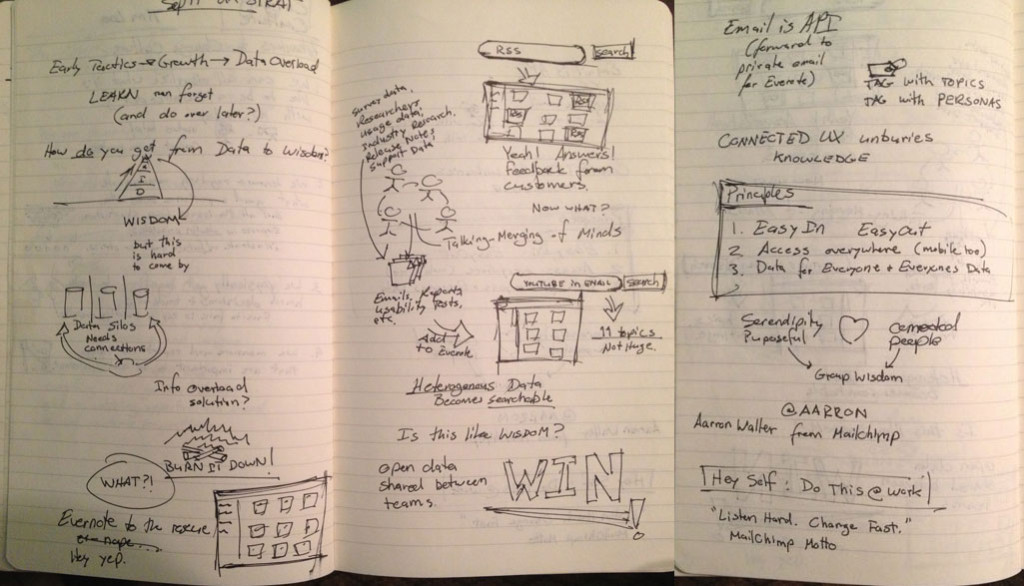 Early Tactics → Growth → Data Overload
LEARN then forget
(and do over later?)
How do you get from Data to Wisdom?
I
D
WISDOM
but this
is hard
to come by
Data Silos
Needs
connections
Info overload
solution?
BURN IT DOWN!
WHAT?!
Evernote to the rescue,
or nope...
Hey yep.
RSS
search
survey data,
Researchers
usage data,
Industry Research,
Release Notes,
support Data
Yeah! Answers!
Feedback from
customers.
NOW WHAT?
Talking-Merging of Minds
Emails, Reports
Usability Tests,
etc.
Add
to Evernote
YOUTUBE IN EMAIL
search
11 topics
Not Huge.
Heterogenous Data
Becomes searchable
Is this like WISDOM?
Open data
shared between
teams.
WIN!
Email is API
(forward to
private email
for Evernote)
TAG with TOPICS
TAG with PERSONAS
CONNECTED UX unburies
KNOWLEDGE
Principles
1. Easy In Easy Out
2. Access everywhere (mobile too)
3. Data for Everyone + Everyones Data
Serendipity
Purposeful
connected
people
Group Wisdom
@AARRON
Aarron Walter from Mailchimp
Hey Self: Do This @ Work
"Listen Hard. Change Fast."
Mailchimp Motto